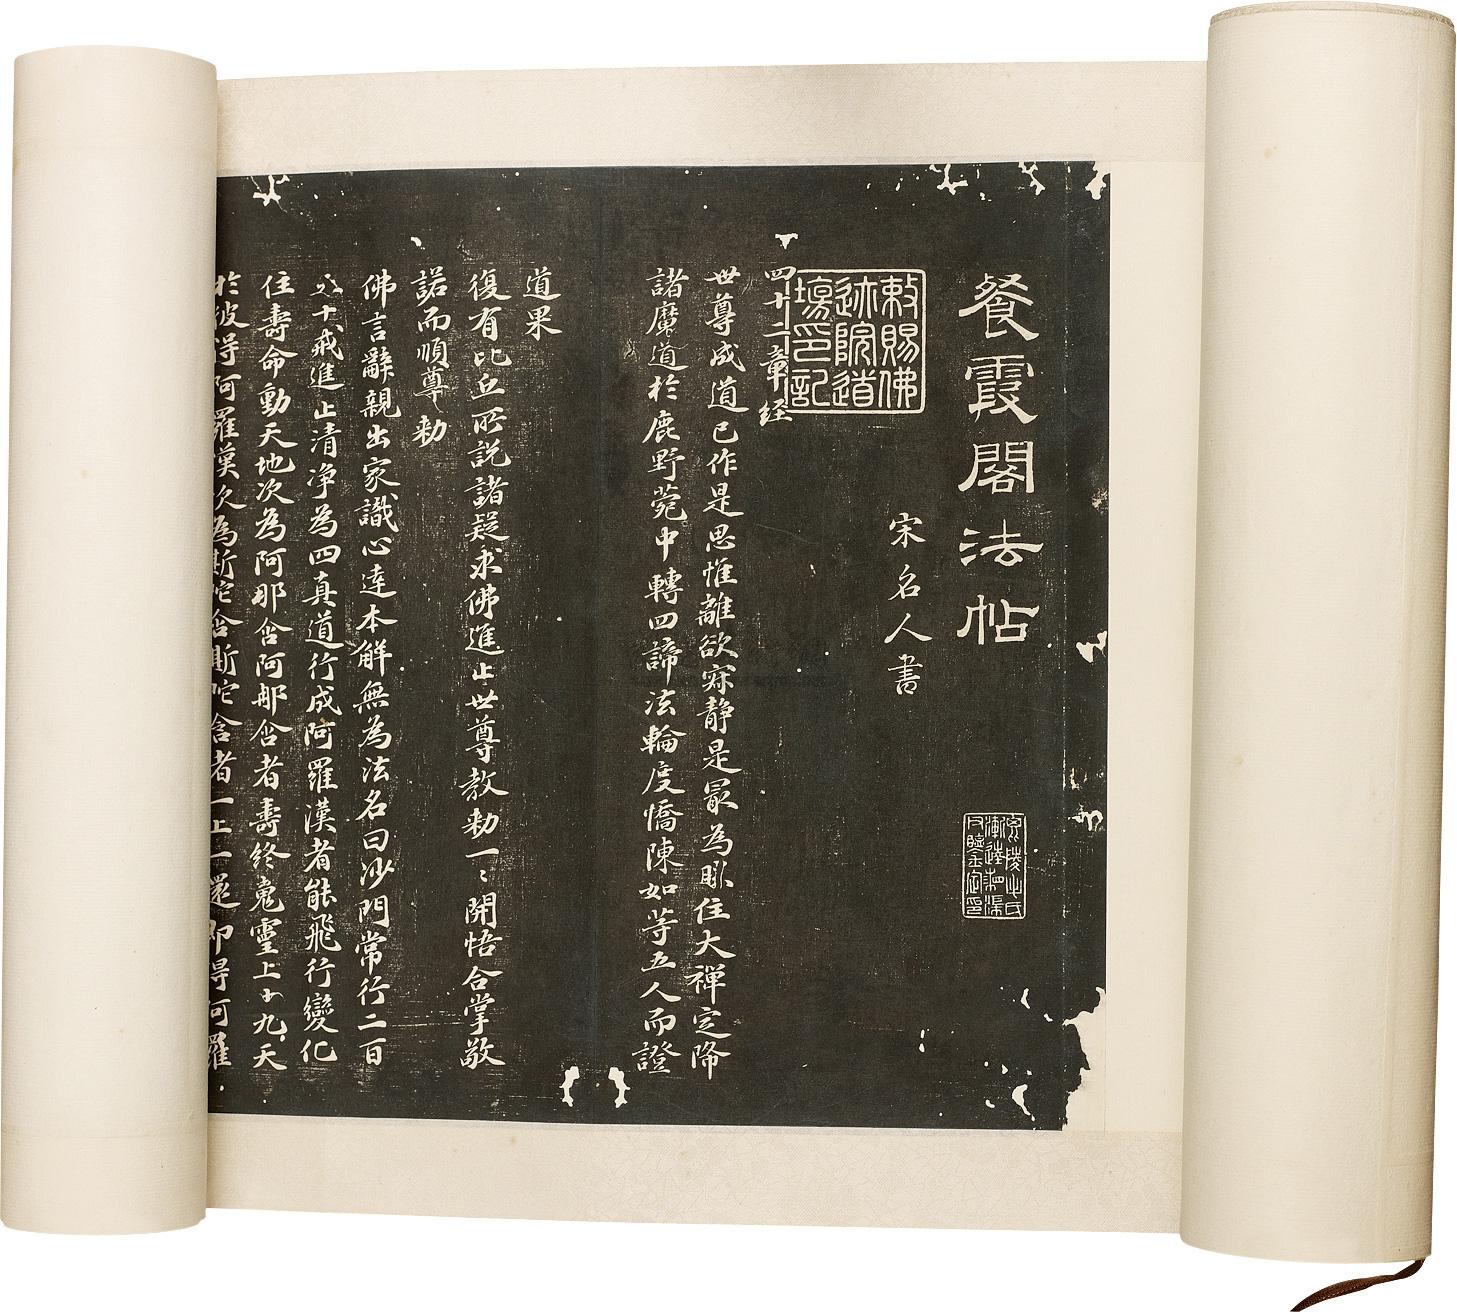 餐霞閣法帖
宋名人書
敕賜佛
迹院道
場印記
四十二章経
世尊成道已作是思惟離欲寂静是冣為勝住大禅定降
諸魔道於鹿野菀中轉四諦法輪度憍陳如等五人而證
道果
復有比丘所説諸疑求佛進止世尊教勅一〻開悟合掌敬
諾而順尊勅
佛言辭親出家識心達本解無為法名曰沙門常行二百
五十戒進止清净為四真道行成阿羅漢者能飛行變化
住壽命動天地次為阿那含阿那含者壽終䰟靈上十九天
於彼得阿羅漢次為斯陀含斯陀含者一上一還即得阿羅